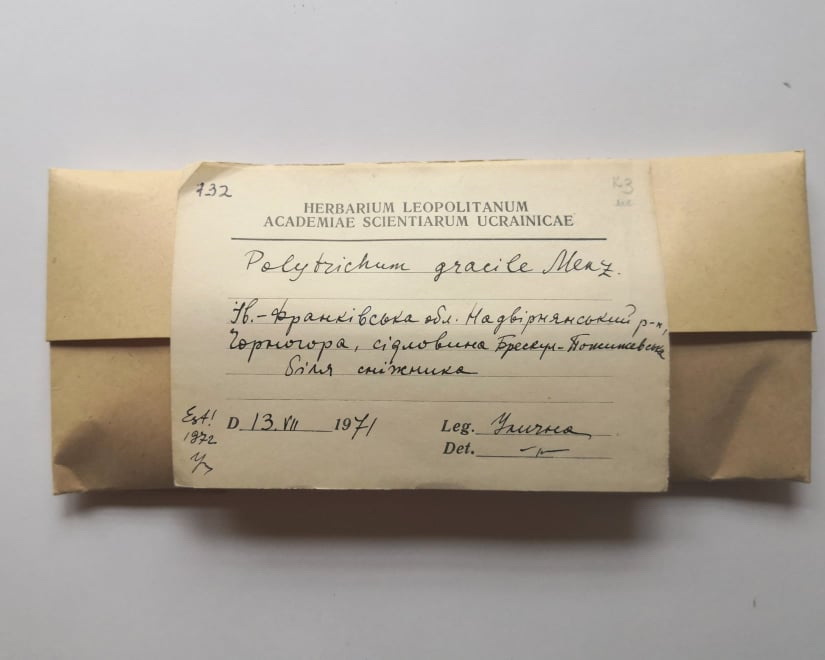 132
HERBARIUM LEOPOLITANUM
ACADEMIAE SCIENTIARUM UCRAINICAE
Polytrichum gracile Menz.
Ів.-Франківська обл. Надвірнянський р-н,
Чорногора, сідловина Брескул-Пожижевська
біля сніжника
Est!
1972
D. 13.VII 1971
Leg. Улична
Det. -"-